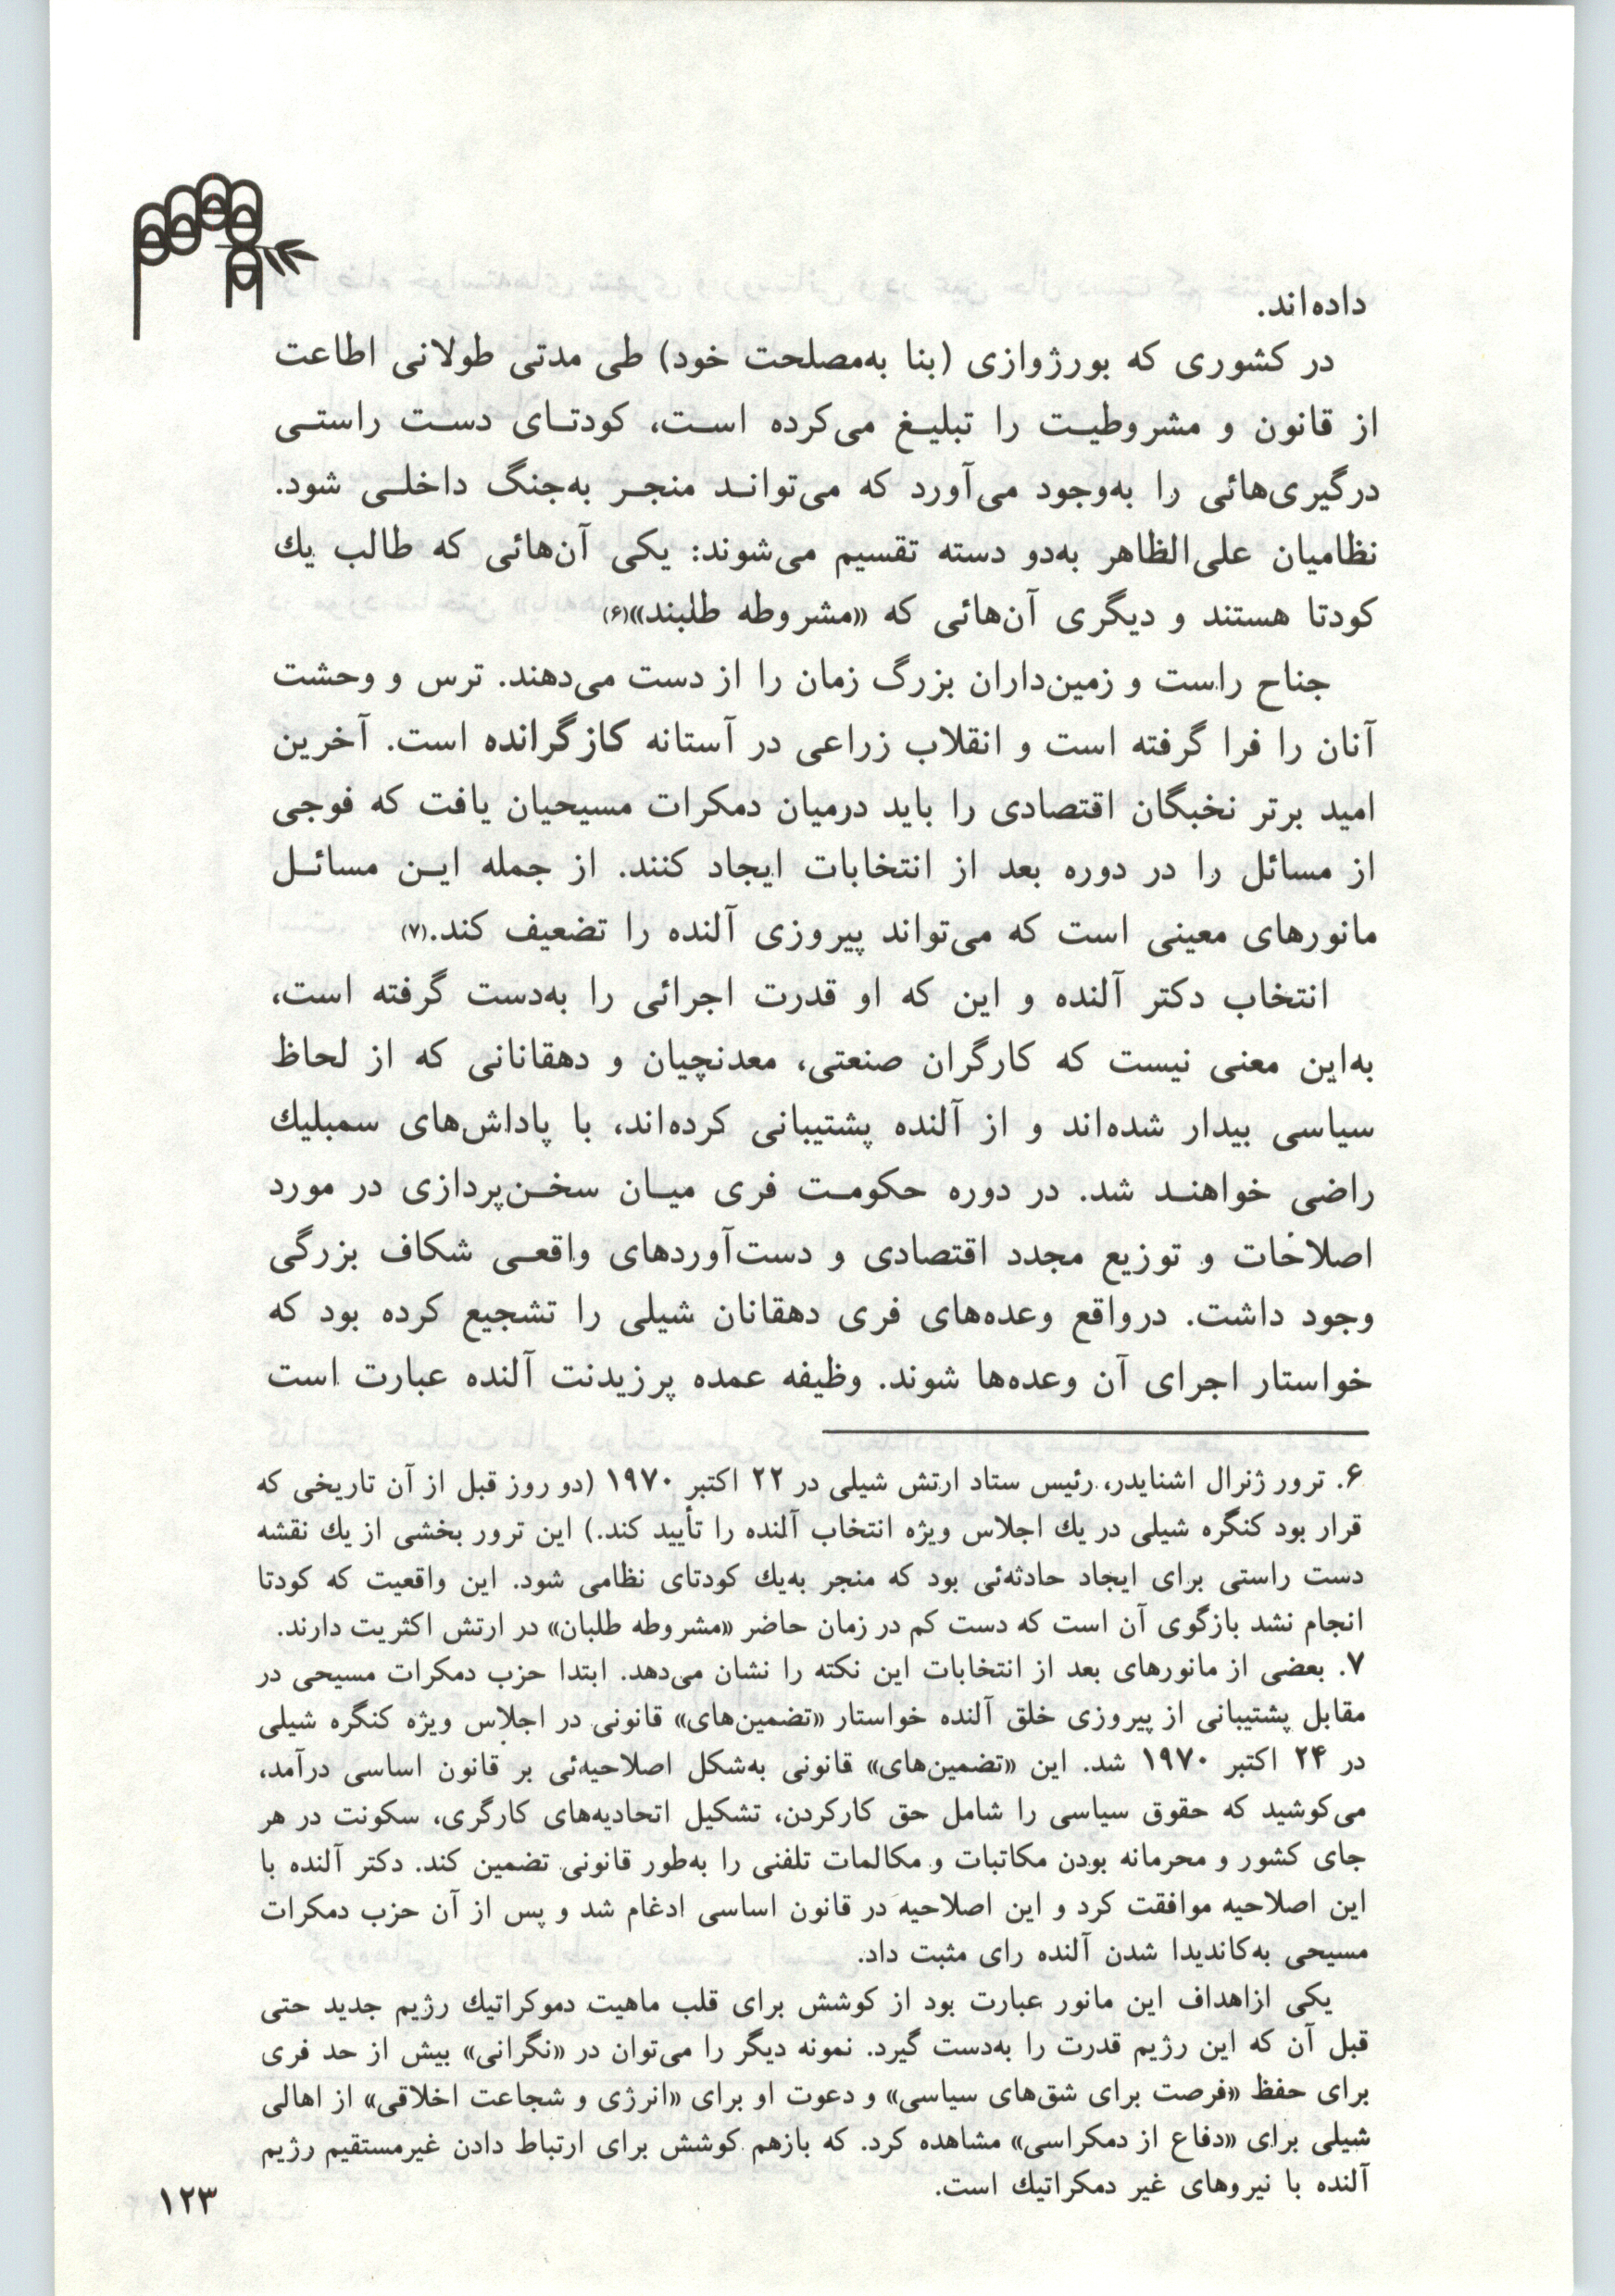 داده‌اند.
در کشوری که بورژوازی (بنا به‌مصلحت خود) طی مدتی طولانی اطاعت
از قانون و مشروطیت را تبلیغ می‌کرده است، کودتای دست راستی
درگیری‌هائی را به‌وجود می‌آورد که می‌تواند منجر به‌جنگ داخلی شود.
نظامیان علی‌الظاهر به‌دو دسته تقسیم می‌شوند: یکی آن‌هائی که طالب یك
کودتا هستند و دیگری آن‌هائی که «مشروطه طلبند»(۶)
جناح راست و زمین‌داران بزرگ زمان را از دست می‌دهند. ترس و وحشت
آنان را فرا گرفته است و انقلاب زراعی در آستانه کازگرانده است. آخرین
امید برتر نخبگان اقتصادی را باید درمیان دمکرات مسیحیان یافت که فوجی
از مسائل را در دوره بعد از انتخابات ایجاد کنند. از جمله این مسائل
مانورهای معینی است که می‌تواند پیروزی آلنده را تضعیف کند.(۷)
انتخاب دکتر آلنده و این که او قدرت اجرائی را به‌دست گرفته است،
به‌این معنی نیست که کارگران صنعتی، معدنچیان و دهقانانی که از لحاظ
سیاسی بیدار شده‌اند و از آلنده پشتیبانی کرده‌اند، با پاداش‌های سمبلیك
راضی خواهند شد. در دوره حکومت فری میان سخن‌پردازی در مورد
اصلاخات و توزیع مجدد اقتصادی و دست‌آوردهای واقعی شکاف بزرگی
وجود داشت. درواقع وعده‌های فری دهقانان شیلی را تشجیع کرده بود که
خواستار اجرای آن وعده‌ها شوند. وظیفه عمده پرزیدنت آلنده عبارت است
۶. ترور ژنرال اشنایدر، رئیس ستاد ارتش شیلی در ۲۲ اکتبر ۱۹۷۰ (دو روز قبل از آن تاریخی که
قرار بود کنگره شیلی در یك اجلاس ویژه انتخاب آلنده را تأیید کند.) این ترور بخشی از یك نقشه
دست راستی برای ایجاد حادثه‌ئی بود که منجر به‌یك کودتای نظامی شود. این واقعیت که کودتا
انجام نشد بازگوی آن است که دست کم در زمان حاضر «مشروطه طلبان» در ارتش اکثریت دارند.
۷. بعضی از مانورهای بعد از انتخابات این نکته را نشان می‌دهد. ابتدا حزب دمکرات مسیحی در
مقابل پشتیبانی از پیروزی خلق آلنده خواستار «تضمین‌های» قانونی در اجلاس ویژه کنگره شیلی
در ۲۴ اکتبر ۱۹۷۰ شد. این «تضمین‌های» قانونی به‌شکل اصلاحیه‌ئی بر قانون اساسی درآمد،
می‌کوشید که حقوق سیاسی را شامل حق کارکردن، تشکیل اتحادیه‌های کارگری، سکونت در هر
جای کشور و محرمانه بودن مکاتبات و مکالمات تلفنی را به‌طور قانونی تضمین کند. دکتر آلنده با
این اصلاحیه موافقت کرد و این اصلاحیه در قانون اساسی ادغام شد و پس از آن حزب دمکرات
مسیحی به‌کاندیدا شدن آلنده رای مثبت داد.
یکی ازاهداف این مانور عبارت بود از کوشش برای قلب ماهیت دموکراتیك رژیم جدید حتی
قبل آن که این رژیم قدرت را به‌دست گیرد. نمونه دیگر را می‌توان در «نگرانی» بیش از حد فری
برای حفظ «فرصت برای شق‌های سیاسی» و دعوت او برای «انرژی و شجاعت اخلاقی» از اهالی
شیلی برای «دفاع از دمکراسی» مشاهده کرد. که بازهم کوشش برای ارتباط دادن غیرمستقیم رژیم
آلنده با نیروهای غیر دمکراتیك است.
۱۲۳